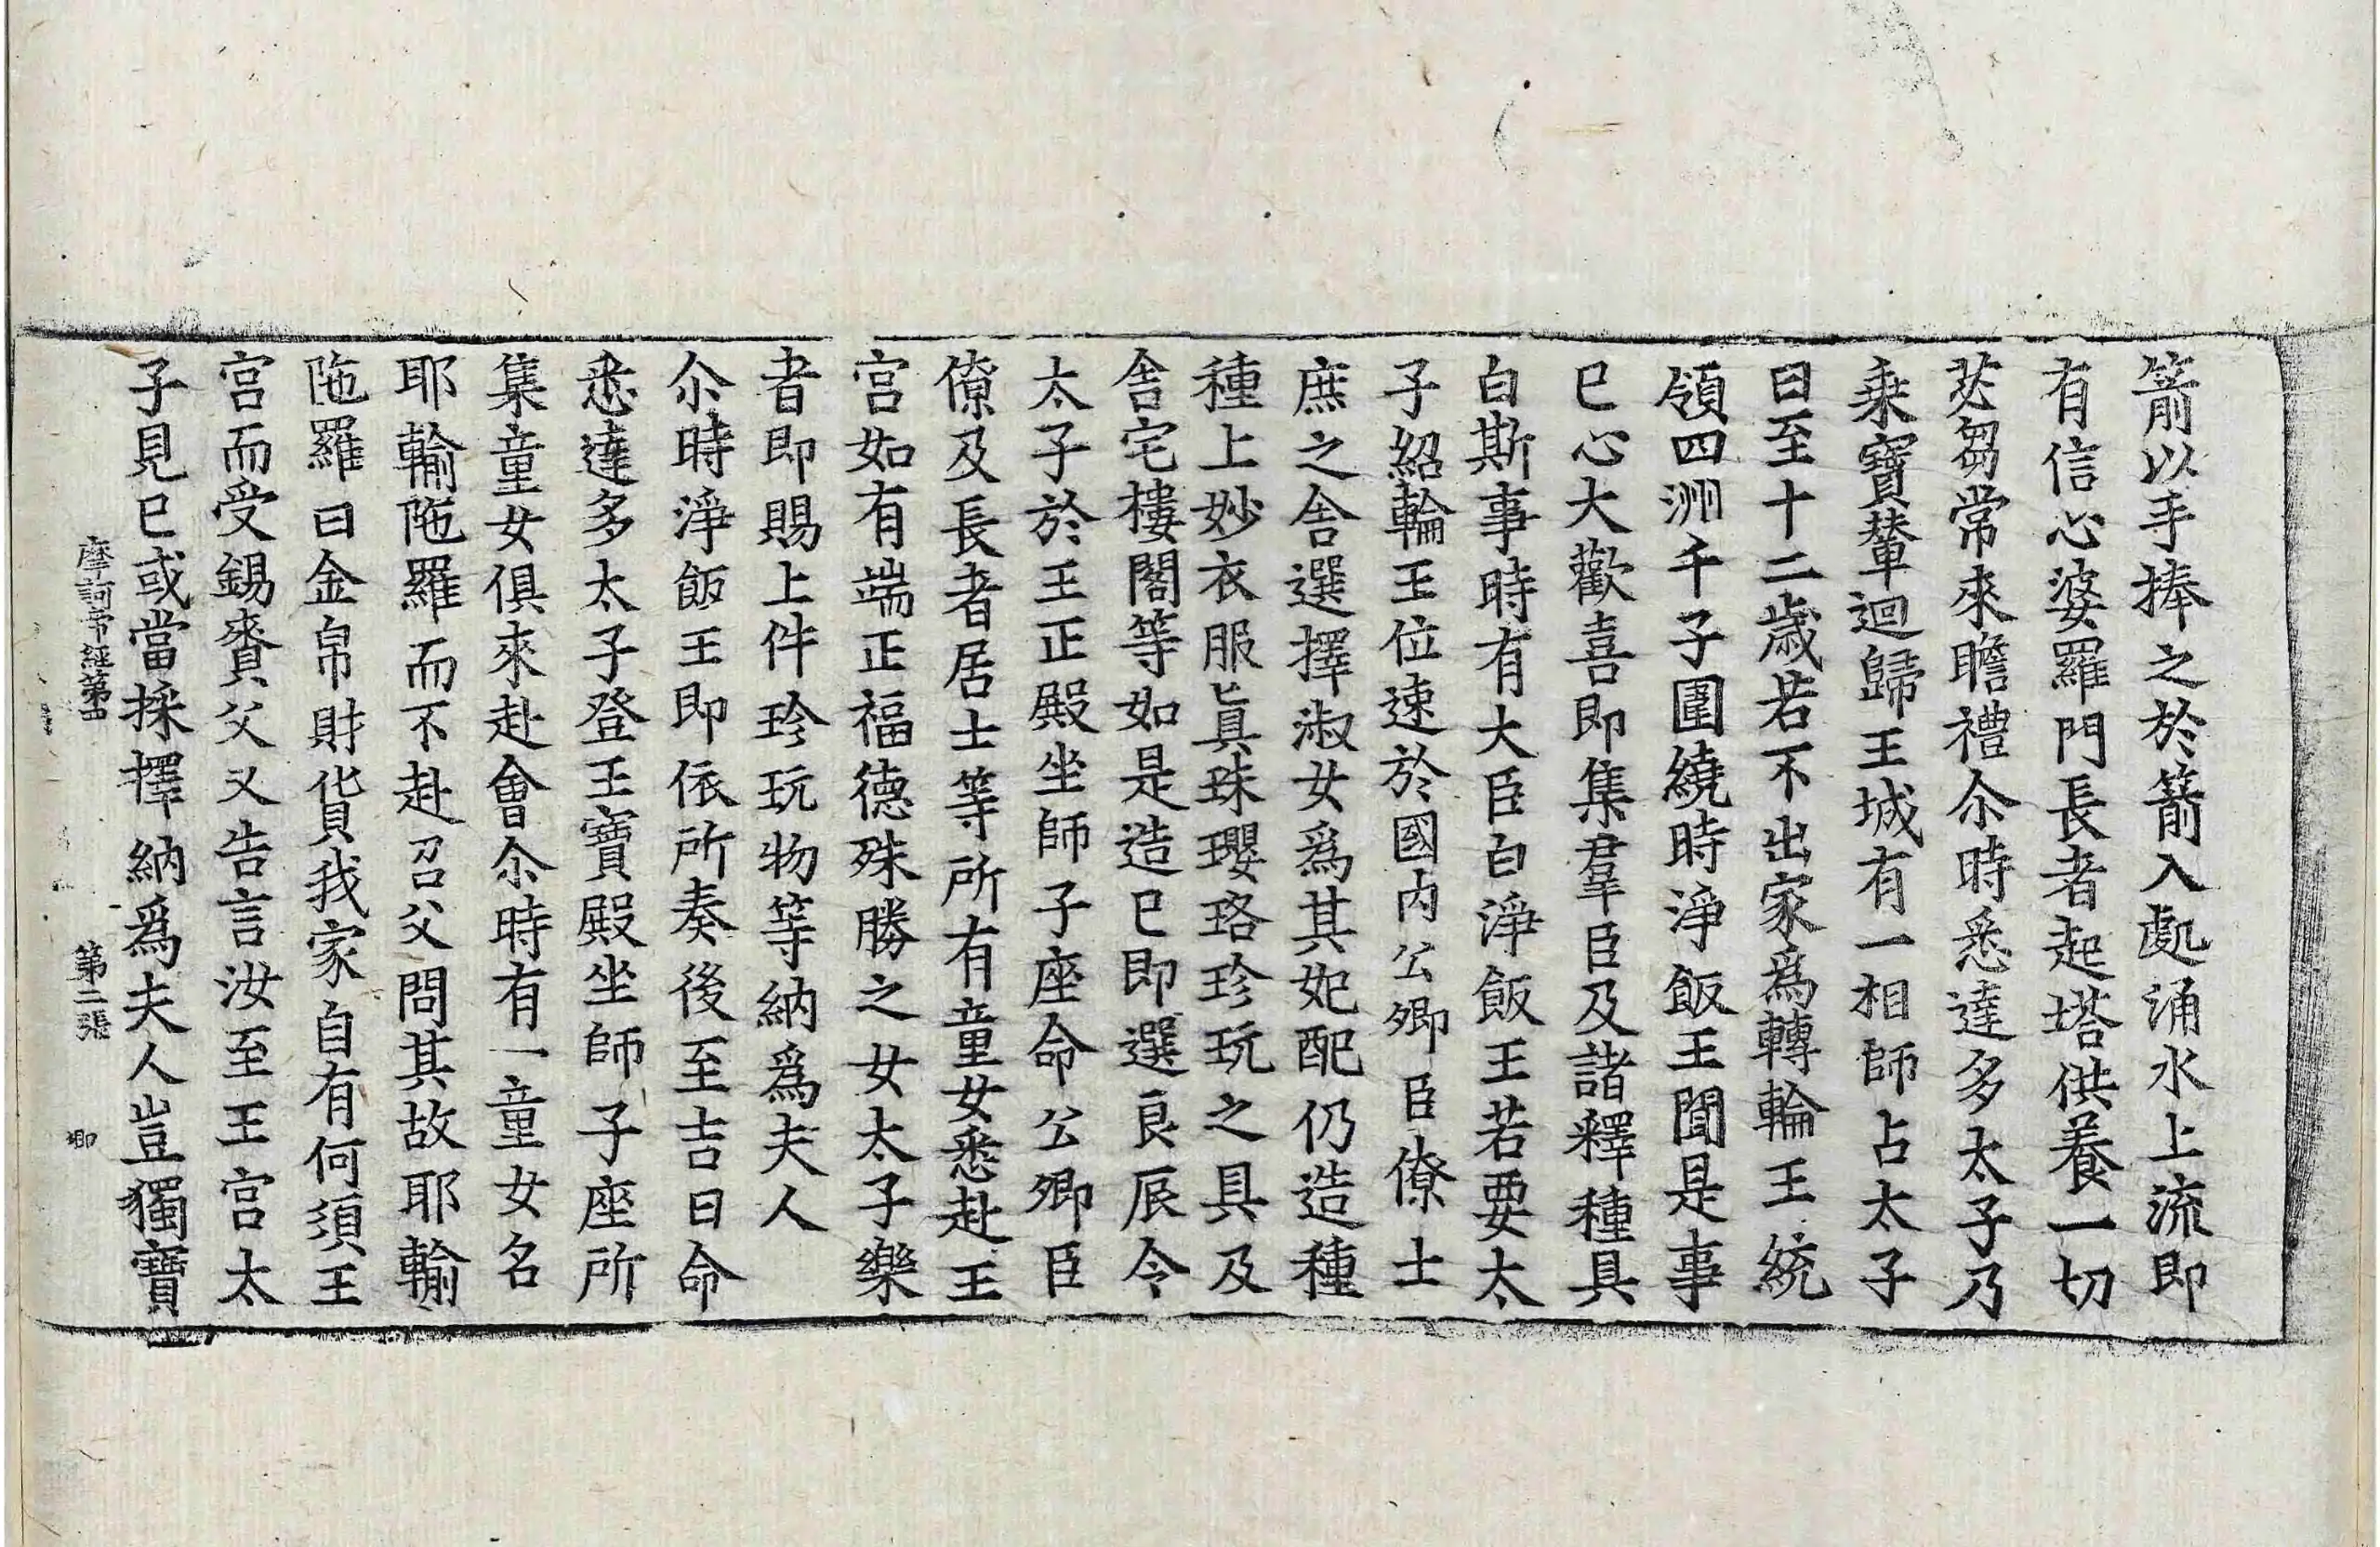 箭以手捧之於箭入處涌水上流即
有信心婆羅門長者起塔供養一切
苾芻常來瞻禮尒時悉達多太子乃
乗寶輦迴歸王城有一相師占太子
曰至十二歲若不出家爲轉輪王統
領四洲千子圍繞時淨飯王聞是事
已心大歡喜即集羣臣及諸釋種具
白斯事時有大臣白淨飯王若要太
子紹輪王位速於國内公卿臣僚士
庶之舍選擇淑女爲其妃配仍造種
種上妙衣服眞珠瓔珞珍玩之具及
舍宅樓閣等如是造已即選良辰令
太子於王正殿坐師子座命公卿臣
僚及長者居士等所有童女悉赴王
宫如有端正福德殊勝之女太子樂
者即賜上件珍玩物等納爲夫人
尒時淨飯王即依所奏後至吉日命
悉達多太子登王寶殿坐師子座所
集童女俱來赴會尒時有一童女名
耶輸陁羅而不赴召父問其故耶輸
陁羅曰金帛財貨我家自有何須王
宫而受錫賚父又告言汝至王宫太
子見已或當採擇納爲夫人豈獨寶
摩訶帝經第四 第二張 卿